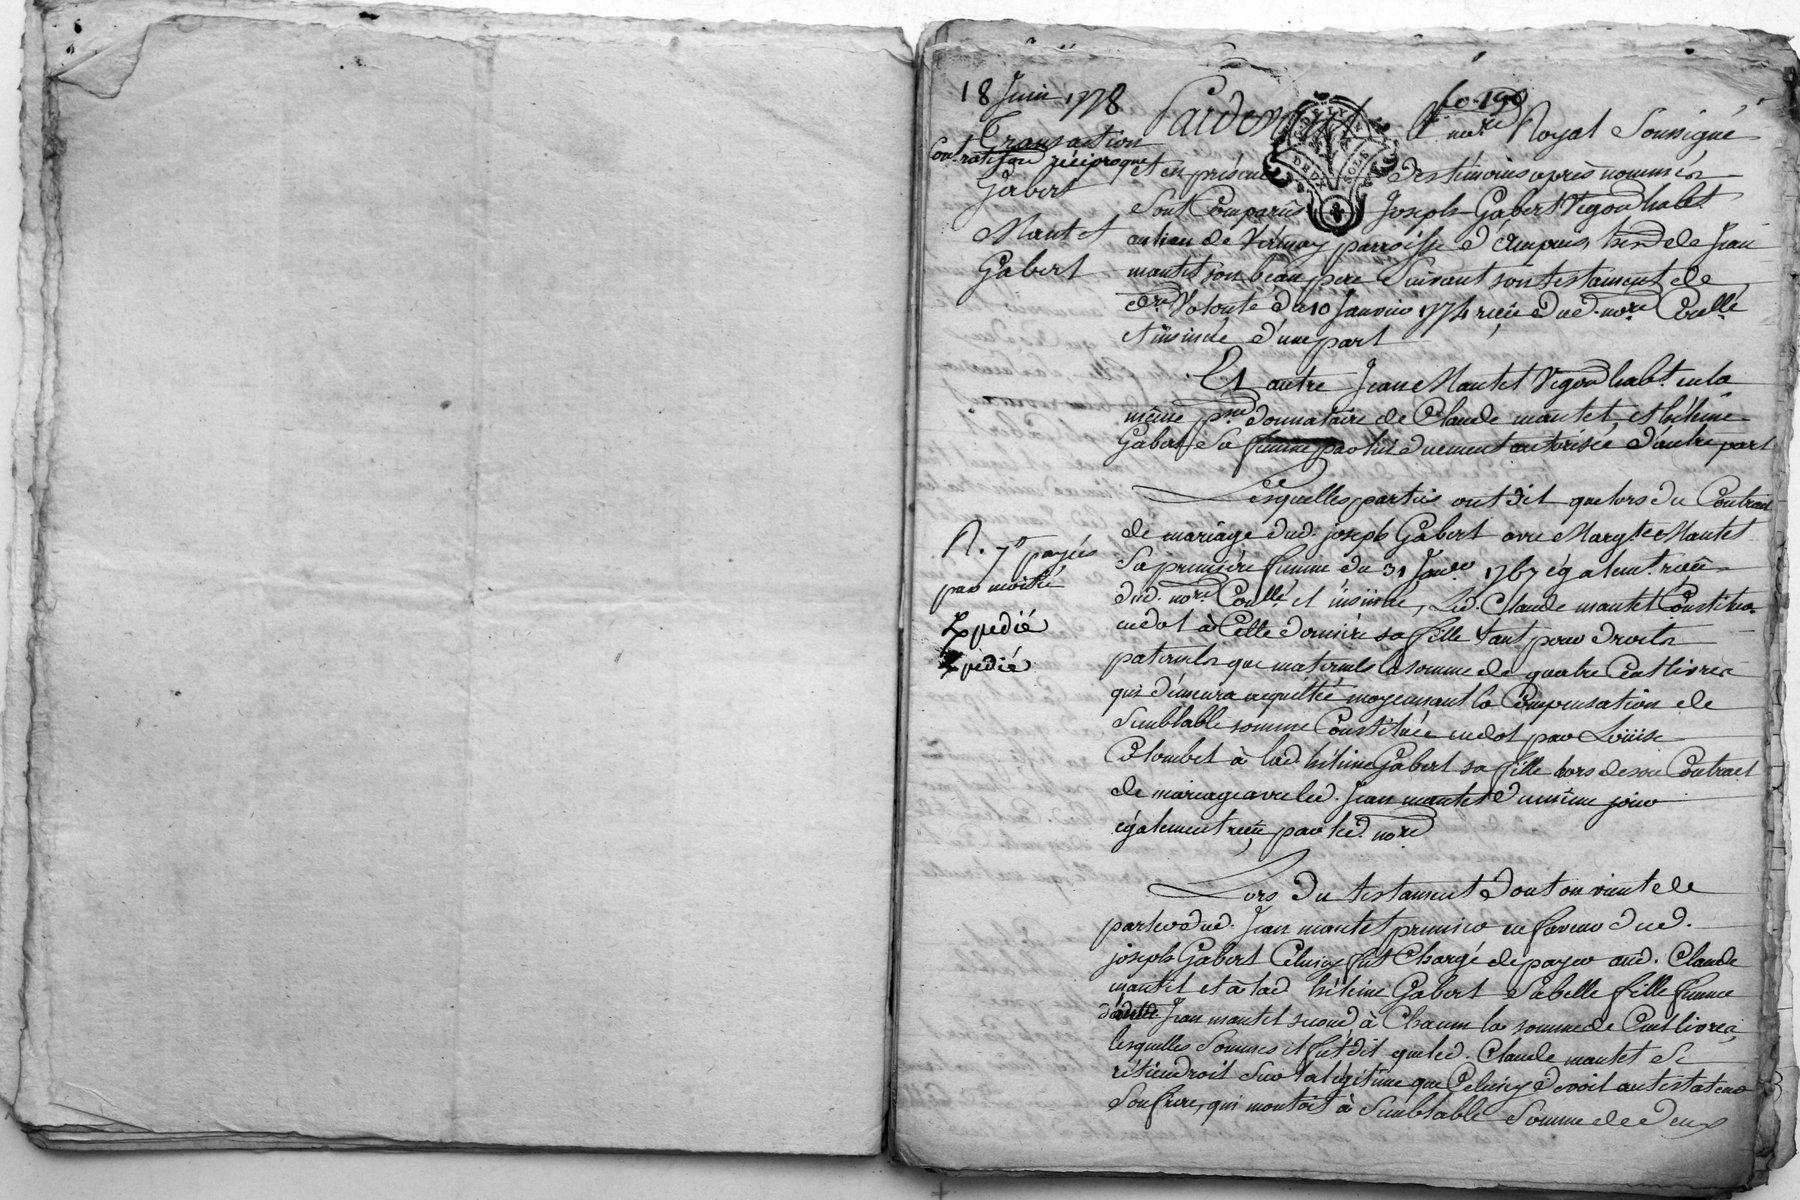 18 Juin 1778
Transaction
Contenant réciproque
Gabert
Mantet
Gabert
R. 7# payés
par moitié
Expédié
Expédié
fo. 190
GEN. DE LYON
DEUX SOLS
Pardevant le nore. Royal soussigné
et en présence des témoins après nommés
sont comparus Joseph Gabert Vigon habt.
au lieu de Verenay parroisse d'Ampuis herd. de Jean
mantet son beau pere suivant son testament de
dre. Volonté du 10 Janvier 1774 reçu dud. nore.
et insinué d'une part
Et autre Jean Mantet Vigon habt. en la
même pse. donnataire de Claude mantet et hélène
Gabert sa femme par lui duement autorisée d'autre part
Lesquelles parties ont dit que lors du Contrat
de mariage dud. joseph Gabert avec Margte Mantet
sa première femme du 31 Janv. 1767 égalemt. reçu
dud. nore. et insinué, led. Claude mantet Constitua
en dot à Cette dernière sa fille tant pour droits
paternels que maternels la somme de quatre Cent livres
qui demeura acquittée moyennant la Compensation de
semblable somme Constituée en dot par Loüise
Colombet à lad. hélène Gabert sa fille lors de son Contract
de mariage avec led. Jean mantet du même jour
également reçu par led. nore.
Lors du testament dont on vient de
parler dud. Jean mantet premier en faveur dud.
joseph Gabert Celuicy fut Chargé de payer aud. Claude
mantet et à lad. hélène Gabert sa belle fille femme
dud. Jean mantet second à Chacun la somme de Cent livres,
lesquelles sommes il fut dit que led. Claude mantet se
retiendroit sur la légitime que Celuicy devoit au testateur
son frère, qui montoit à semblable somme de deux